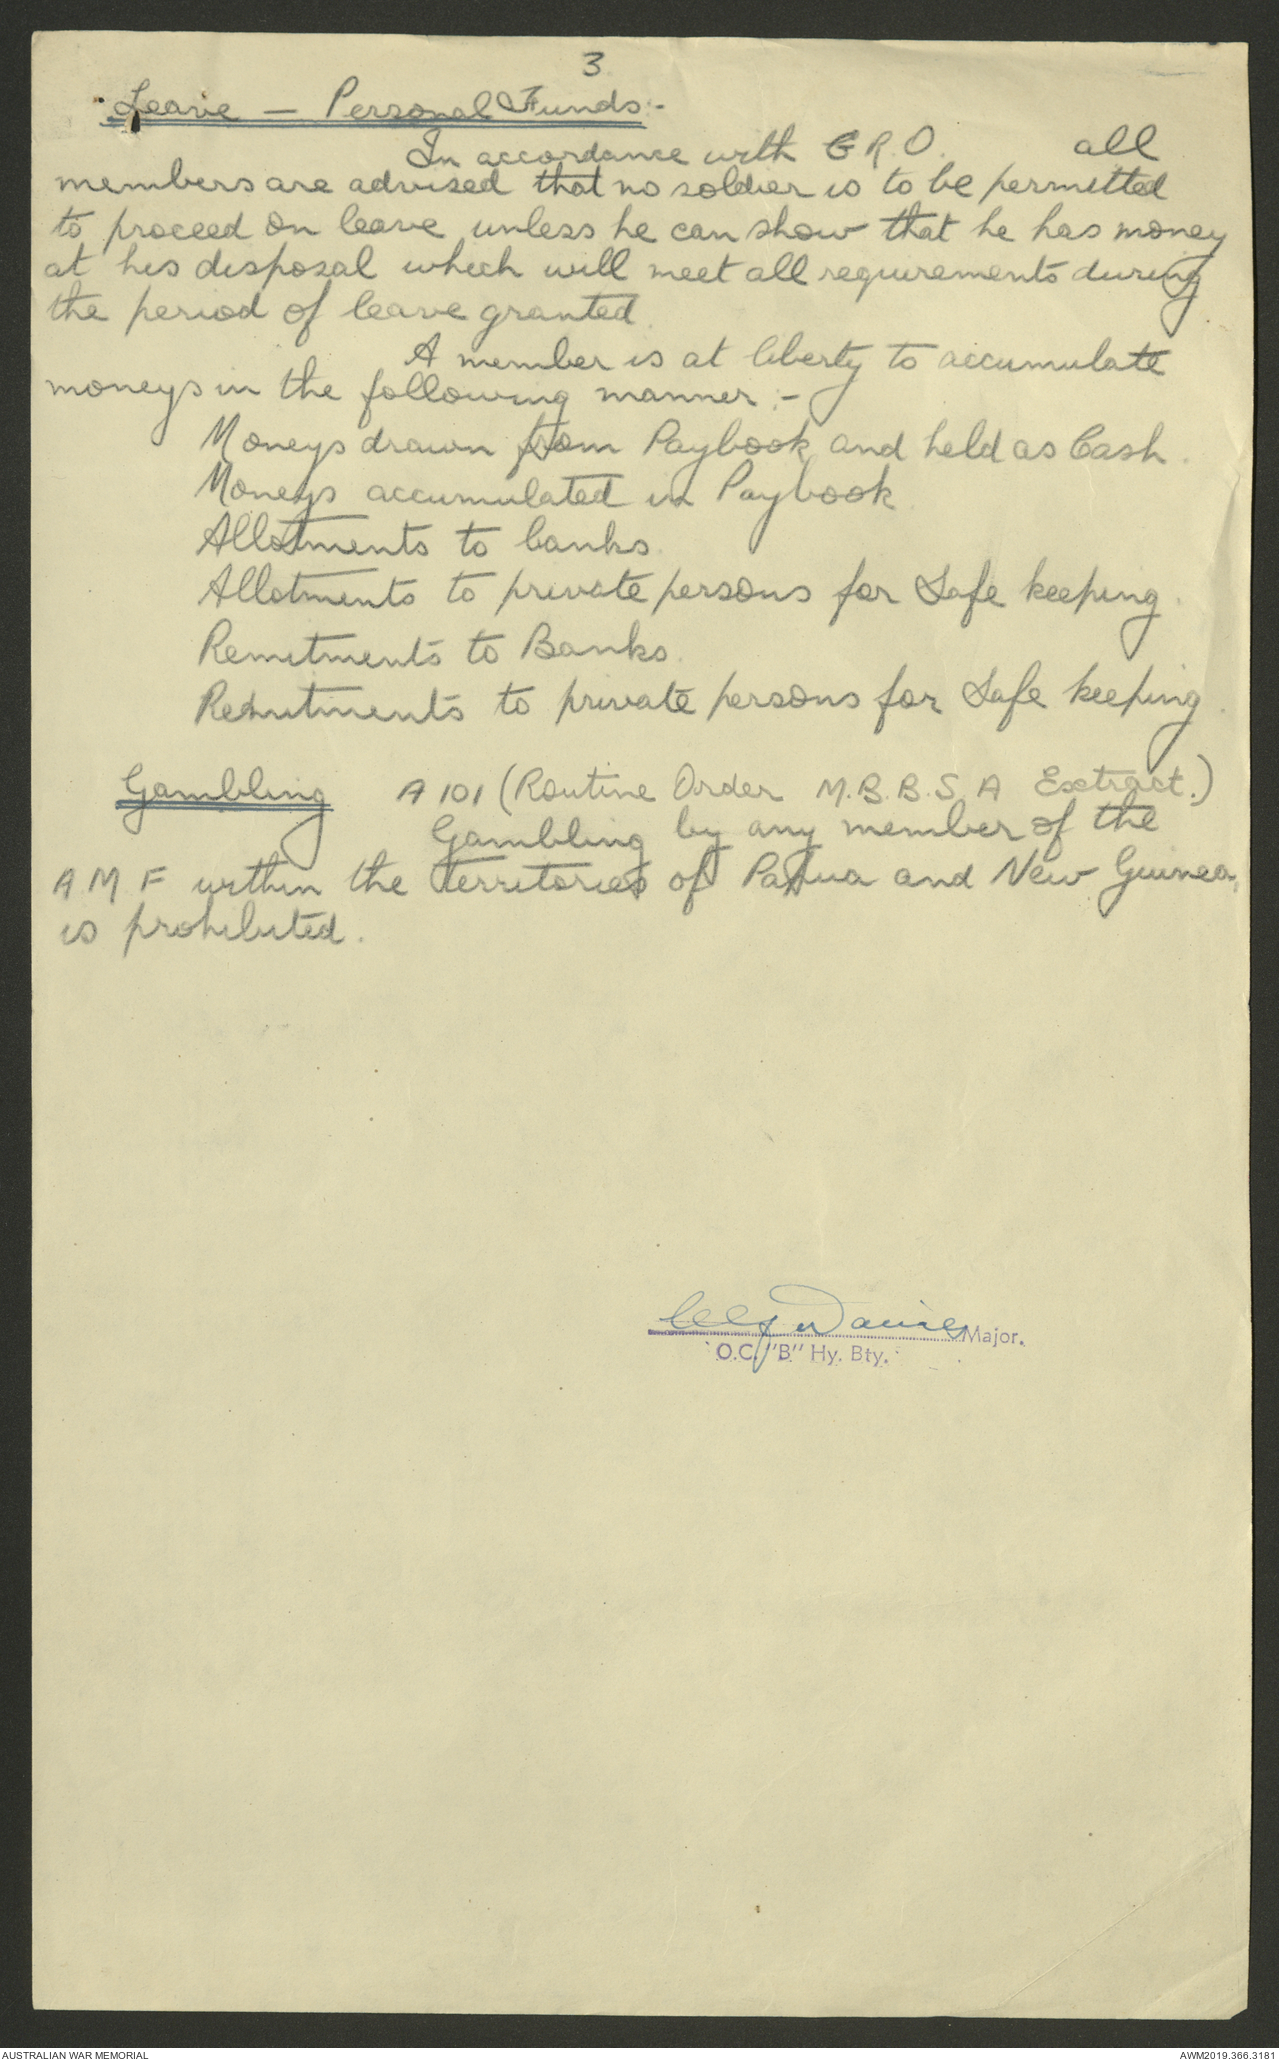 3.
Leave — Personal Funds:-
In accordance with G.R.O. all
members are advised that no soldier is to be permitted
to proceed on leave unless he can show that he has money
at his disposal which will meet all requirements during
the period of leave granted.
A member is at liberty to accumulate
moneys in the following manner:-
Moneys drawn from Paybook and held as Cash.
Moneys accumulated in Paybook.
Allotments to banks.
Allotments to private persons for Safe keeping.
Remitments to Banks.
Remitments to private persons for Safe keeping.
Gambling A 101 (Routine Order M.B.B.S.A Extract.)
Gambling by any member of the
A M F within the territories of Papua and New Guinea,
is prohibited.
Major.
O.C. "B" Hy. Bty.
AUSTRALIAN WAR MEMORIAL
AWM2019.366.3181